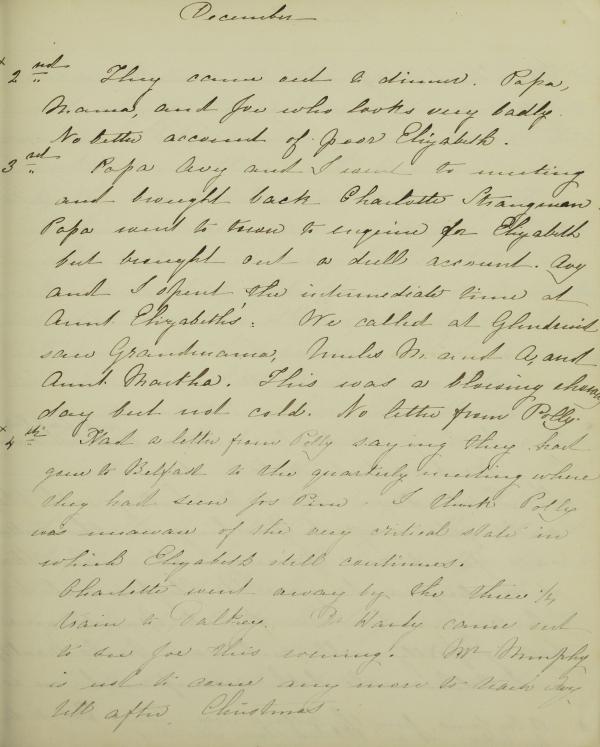 December
x 2nd They came out to dinner. Papa,
Mama, and Joe who looks very badly.
No better account of poor Elizabeth.
3rd Papa Avy and I went to meeting
and brought back Charlotte Strangman.
Papa went to town to enquire for Elizabeth
but brought out a dull account. Avy
and I spent the intermediate time at
Aunt Elizabeth's. We called at Glendruid
saw Grandmama, Uncles M. and A, and
Aunt Martha. This was a blowing
day but not cold. No letter from Polly.
x 4th Had a letter from Polly saying they had
gone to Belfast to the quarterly meeting where
they had seen Jos Pim. I think Polly
was unaware of the very critical state in
which Elizabeth still continues.
Charlotte went away by the three 1/4
train to Dalkey. Dr Hardy came out
to see Joe this evening. Mr Murphy
is not to come any more to teach Avy
till after Christmas.